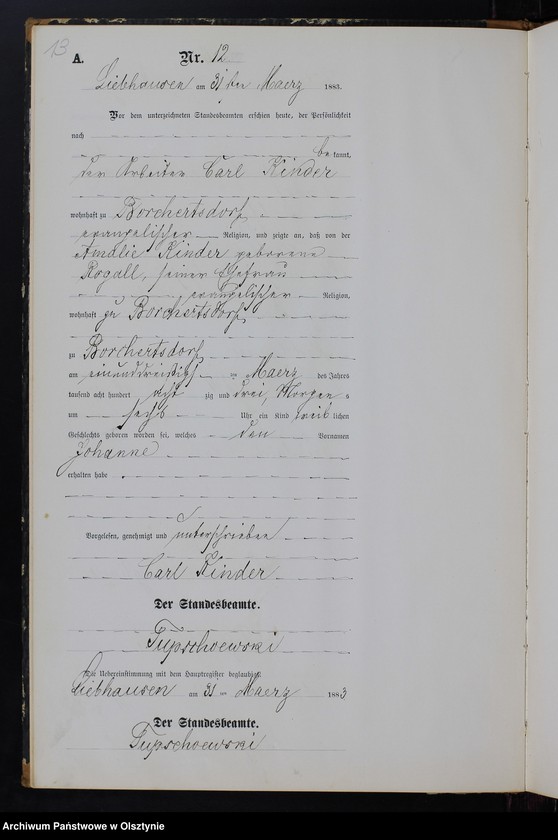 13
A. Nr. 12
Liebhausen am 31ten Maerz 1883.
Vor dem unterzeichneten Standesbeamten erschien heute, der Persönlichkeit
nach
be kannt,
der Arbeiter Carl Kinder
wohnhaft zu Borchertsdorf
evangelischer Religion, und zeigte an, daß von der
Amalie Kinder geborene
Rogall, seiner Ehefrau
evangelischer Religion,
wohnhaft zu Borchertsdorf
zu Borchertsdorf
am einunddreißigsten Maerz des Jahres
tausend acht hundert acht zig und drei, Morgens
um sechs Uhr ein Kind weib lichen
Geschlechts geboren worden sei, welches den Vornamen
Johanne
erhalten habe
Vorgelesen, genehmigt und unterschrieben
Carl Kinder
Der Standesbeamte.
Tupschoewski
Die Uebereinstimmung mit dem Hauptregister beglaubigt.
Liebhausen am 31 ten Maerz 1883
Der Standesbeamte.
Tupschoewski
Archiwum Państwowe w Olsztynie